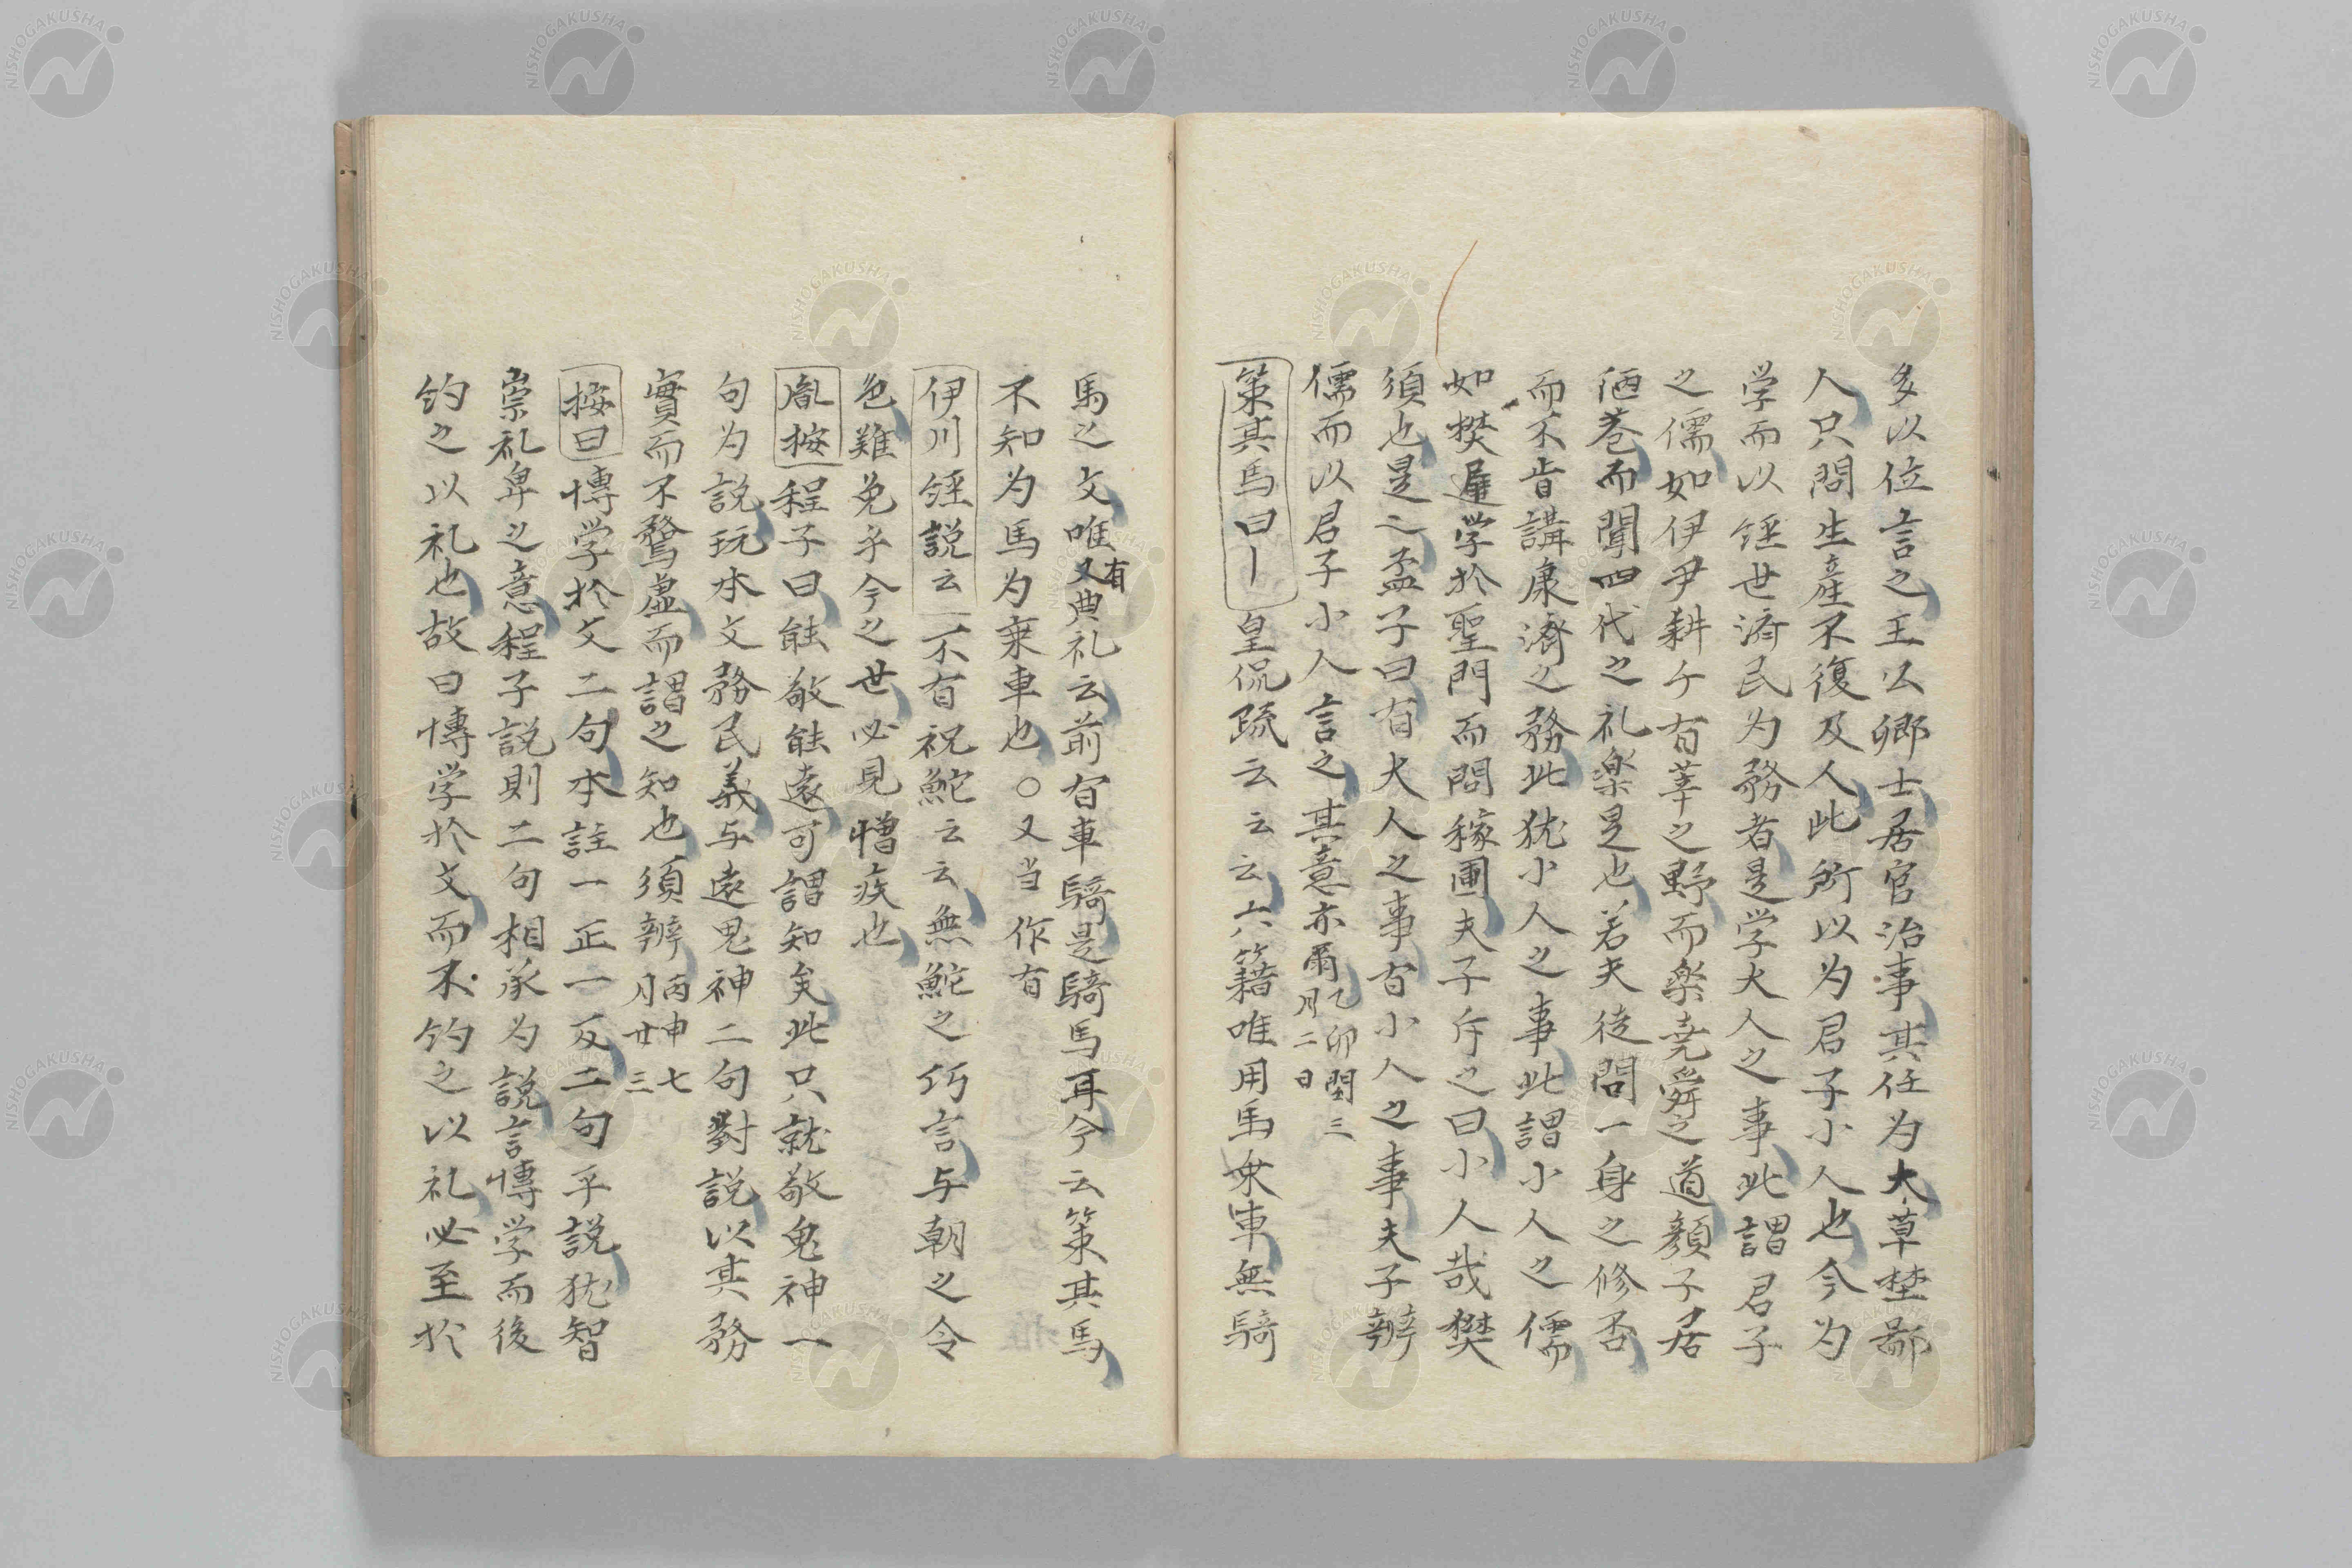 多以位言之王公卿士居官治事其任为大草埜鄙
人只問生産不復及人此所以为君子小人也今为
学而以経世済民为務者是学大人之事此謂君子
之儒如伊尹耕于有莘之野而楽尭舜之道顔子居
陋巷而聞四代之礼楽是也若夫徒問一身之修否
而不肯講康濟之務此犹小人之事此謂小人之儒
如樊遲学於聖門而問稼圃夫子斥之曰小人哉樊
須也是之孟子曰有大人之事有小人之事夫子辨
儒而以君子小人言之其意亦爾乙卯閏三月二日
策其馬曰一皇侃疏云云云六籍唯用馬乗車無騎
馬之文唯又有典礼云前有車騎是騎馬耳今云策其馬
不知为馬为乗車也○又当作有
伊川経説云不有祝鮀云云無鮀之巧言与朝之令
色難免乎今之世必見憎疾也
胤按程子曰能敬能遠可謂知矣此只就敬鬼神一
句为説玩本文務民義与遠鬼神二句對説以其務
實而不鶩虚而謂之知也須辨丙申七月廿三
按曰博学於文二句本註一正一反二句平説犹智
崇礼卑之意程子説則二句相承为説言博学而後
約之以礼也故曰博学於文而不約之以礼必至於
NISHOGAKUSHA